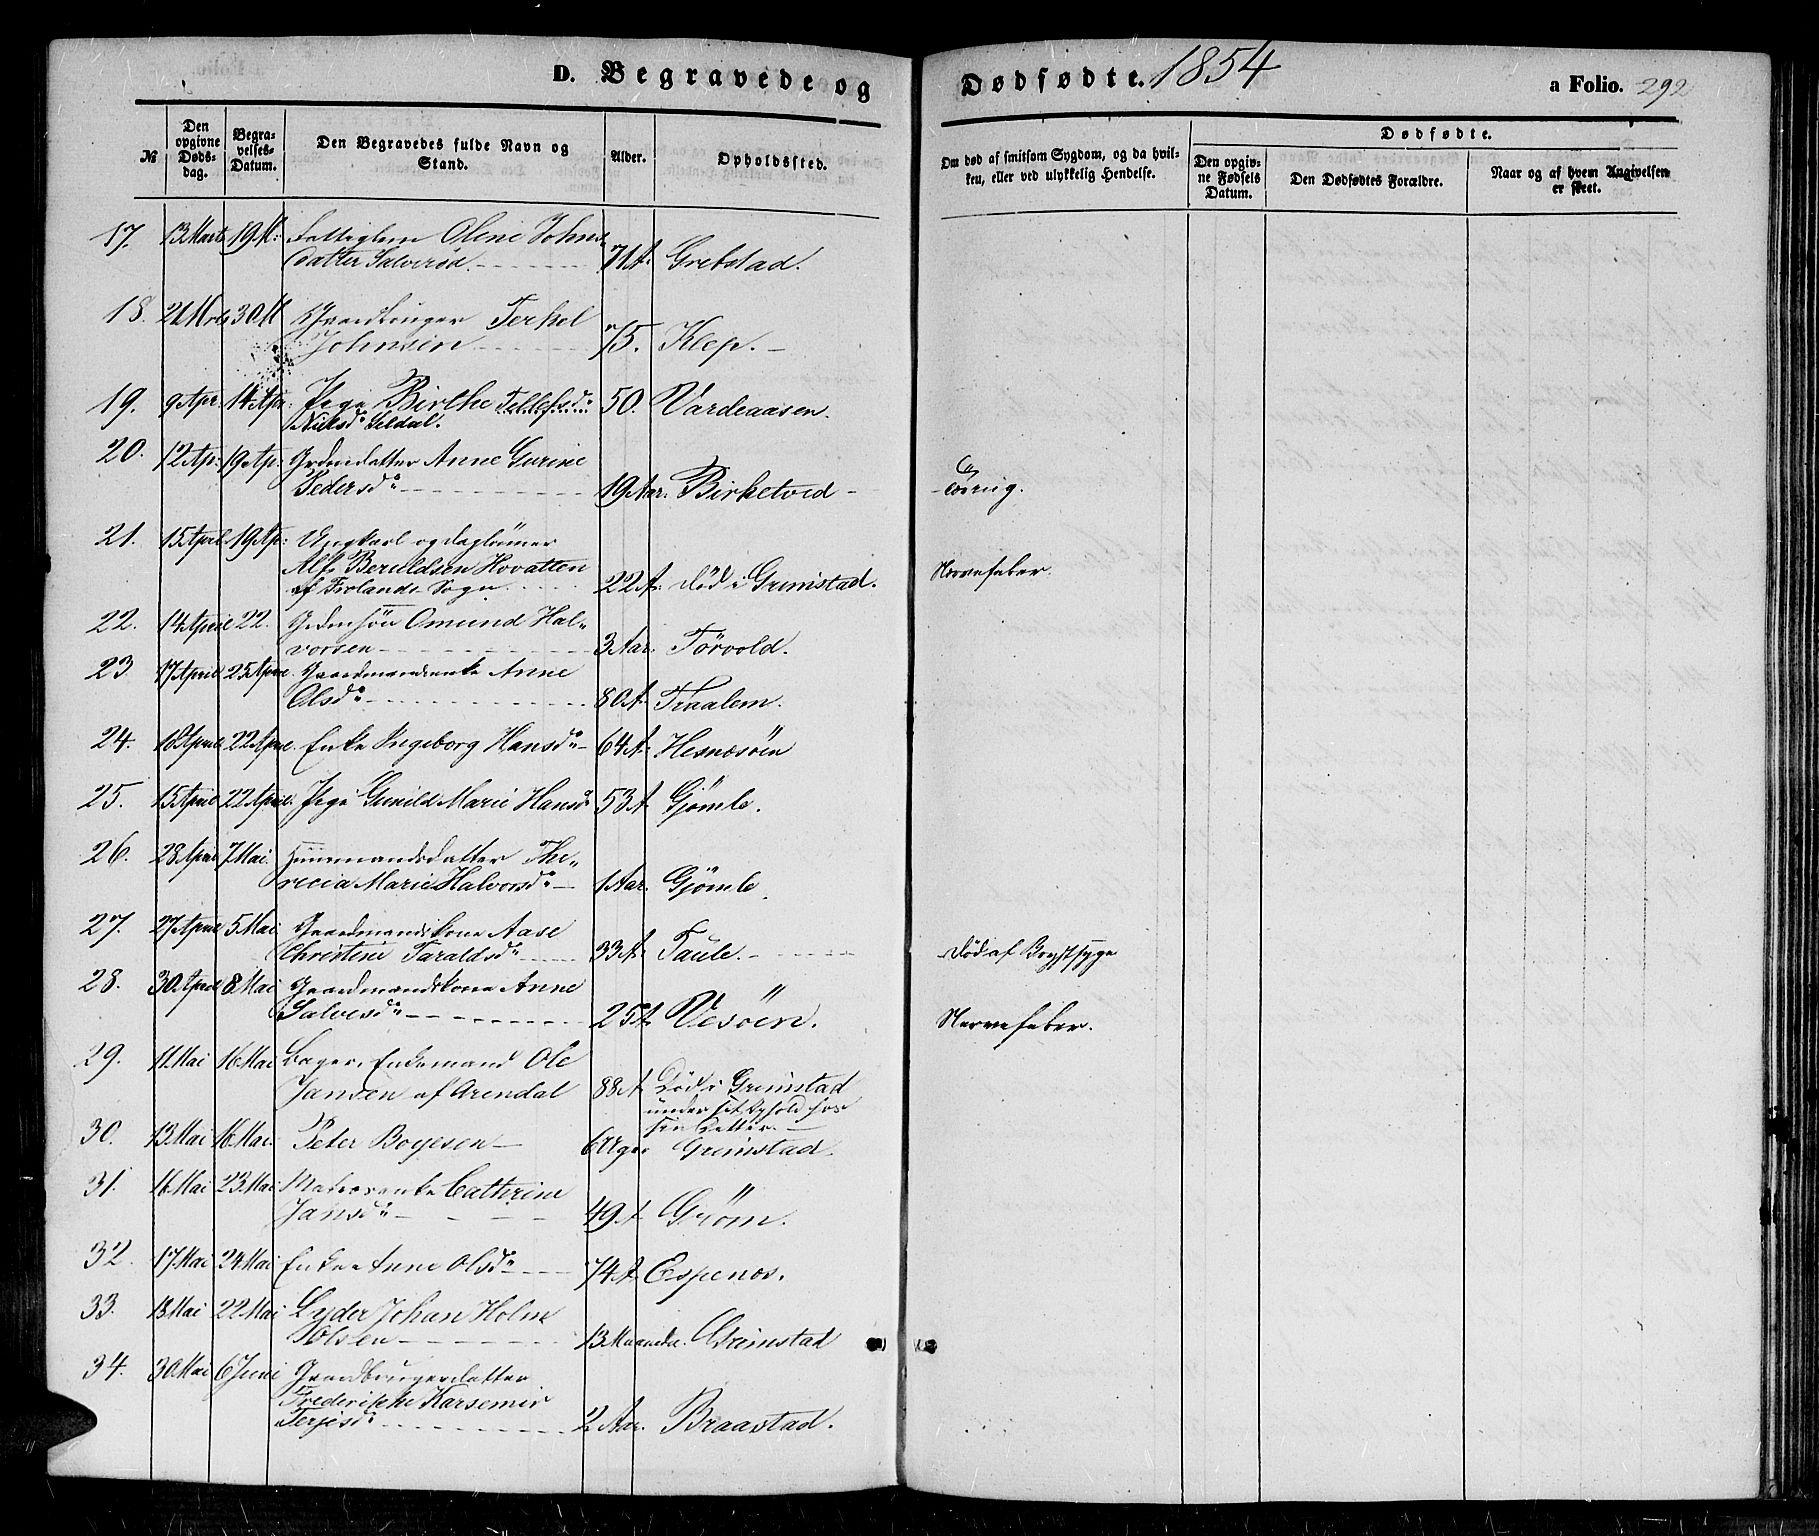 D. Begravede og Dødfødte. 1854 a Folio. 292
№
Den opgivne Døds-dag.
Begra-velses-Datum.
Den Begravedes fulde Navn og Stand.
Alder.
Opholdssted.
Om død af smitsom Sygdom, og da hvil-ken, eller ved ulykkelig Hendelse.
Dødfødte.
Den opgiv-ne Fødsels Datum.
Den Dødfødtes Forældre.
Naar og af hvem Angivelsen er skeet.
17. 13 Marts 19 M: Fattiglem Oline Johns
datter Salverød. 71 A. Grefstad.
18. 21 Mrts 30 M Gaardbruger Terkel
Johnsen 75. Klep.
19. 9 Apr: 14 Apr: Pige Birthe Tellefsdr
Nielsdr Sildal. 50. Vardeaasen.
20. 12 Ap: 19 Ap: Grdmdatter Anne Gurine
Pedersdr 19 Aar. Birketved
21. 15 April 19 Ap: Ungkarl og dagløner
Alf Beruldsen Hovatten
af Frolands Sogn 22 A. død i Grimstad. Nervefeber.
22. 14 April 22. Grdmsön Omund Hal-
vorsen 3 Aar. Törvold.
23 17 April 25 April. Gaardmandsenke Anne
Olsdr 80 A. Traalem.
24. 18 April 22 April. Enke Ingeborg Hansdr 64 A. Hesnesöen
25. 15 April 22 April. Pige Gunild Marie Hansdr 53 A Gjömle.
26. 28 April 7 Mai. Huusmandsdatter The-
recia Marie Halvorsdr 1 Aar. Gjömle.
27. 27 April 5 Mai Gaardmandskone Aase
Christine Taraldsdr 33 A. Taule. Död af Brystsyge
28. 30 April 8 Mai Gaardmandskone Anne
Salvesdr 25 A. Vesöen. Nervefeber.
29. 11 Mai 16 Mai Enkemand Ole
Jansen af Arendal 88 A Död i Grimstad
under sit Ophold hos
sin Datter.
30. 13 Mai 16 Mai. Peter Boyesen 6 Uger Grimstad.
31. 16 Mai 23 Mai Matrosenke Cathrine
Jansdr 49 A Gröm.
32. 17 Mai 24 Mai Enke Anne Olsdr 74 A. Espenes.
33. 18 Mai 22 Mai Lyder Johan Holm
Olsen 13 Maaneder. Grimstad
34. 30 Mai 6 Juni Gaardbrugerdatter
Frederikke Karsemir
Terjesdr 2 Aar. Braastad.